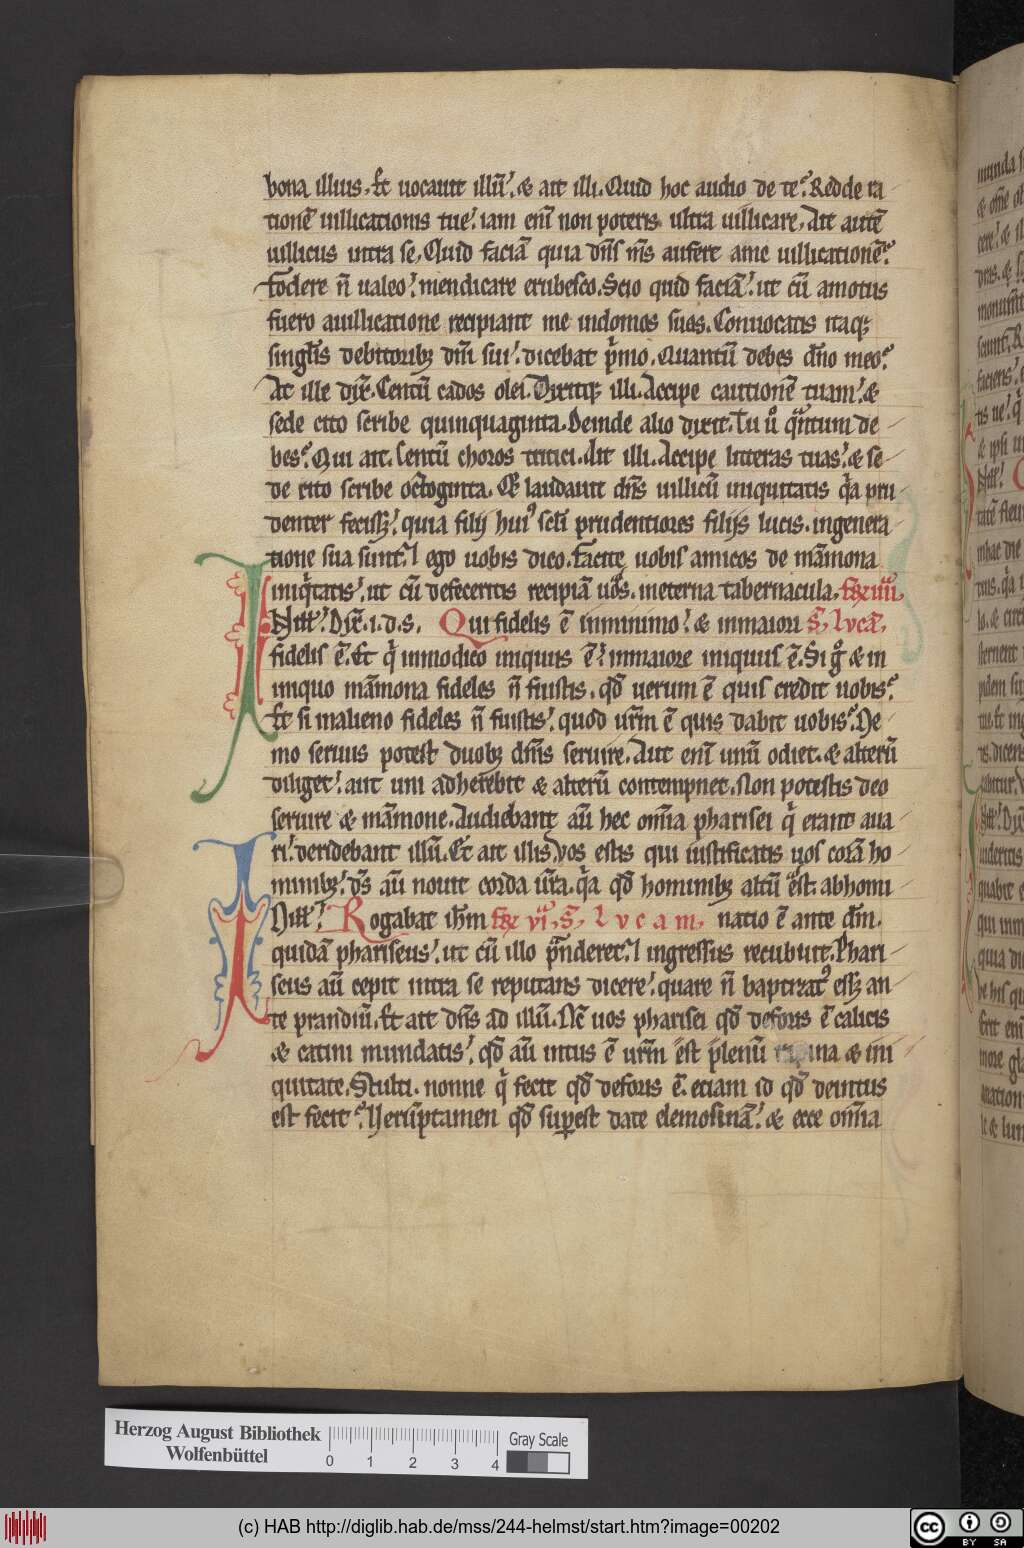 bona illius. Et uocauit illū. & ait illi. Quid hoc audio de te. Redde ra
tionē uillicationis tue. iam enī non poteris ultra uillicare. Ait autē
uillicus intra se. Quid faciā quia dn̄s m̄s aufert a me uillicationē.
fodere n̄ ualeo. mendicare erubesco. Scio quid faciā. ut cū amotus
fuero auillicatione recipiant me indomos suas. Conuocatis itaqꝫ
singl̄is debitoribꝫ dn̄i sui. dicebat p̄mo. Quantū debes dn̄o meo.
At ille dix̄. Centū cados olei. Dixitqꝫ illi. Accipe cautionē tuam. &
sede cito scribe quinquaginta. Deinde alio dixit. Tu ů qͣntum de
bes. Qui ait. Centū choros tritici. Ait illi. Accipe litteras tuas. & se
de cito scribe octoginta. Et laudauit dn̄s uillicū iniquitatis qͣ pru
denter fecissꝫ. quia filij huiꝰ scl̄i prudentiores filijs lucis. ingenera
tione sua sunt. I ego uobis dico. facite uobis amicos de māmona
iniqͥtatis. ut cū defeceritis recipiā uos. ineterna tabernacula.
Dix̄. i. d. s. Qui fidelis ē inminimo. & inmaiori S. lvcā.
fidelis ē. Et qͥ inmodico iniquus ē. inmaiore iniquus ē. Si gͦ & in
iniquo māmona fideles n̄ fuistis. qd̄ uerum ē quis credit uobis.
Et si inalieno fideles n̄ fuistis. quod ur̄m ē quis dabit uobis. Ne
mo seruus potest duobꝫ dn̄is seruire. Aut enī unū odiet. & alterū
diliget. aut uni adherebit & alterū contempnet. Non potestis deo
seruire & māmone. Audiebant aū hec om̄ia pharisei qͥ erant aua
ri. deridebant illū. Et ait illis. vos estis qui iustificatis uos corā ho
minibꝫ. ds̄ aū nouit corda ur̄a. qͣ qd̄ hominibꝫ altū est. abhomi
Rogabat ih̄m vi. S. lvcam. natio ē ante dm̄.
quidā phariseus. ut cū illo p̄nderet. I ingressus recubuit. Phari
seus aū cepit intra se reputans dicere. quare n̄ baptizatꝰ essꝫ an
te prandiū. Et ait dn̄s ad illū. Nc̄ uos pharisei qd̄ deforis ē calicis
& catini mundatis. qd̄ aū intus ē ur̄m est plenū & ini
quitate. Stulti. nonne qͥ fecit qd̄ deforis ē. etiam id qd̄ deintus
est fecit. Uerūptamen qd̄ supest date elemosinā. & ecce om̄ia
Herzog August Bibliothek
Wolfenbüttel
0 1 2 3 4
Gray Scale
(c) HAB http://diglib.hab.de/mss/244-helmst/start.htm?image=00202
cc BY SA